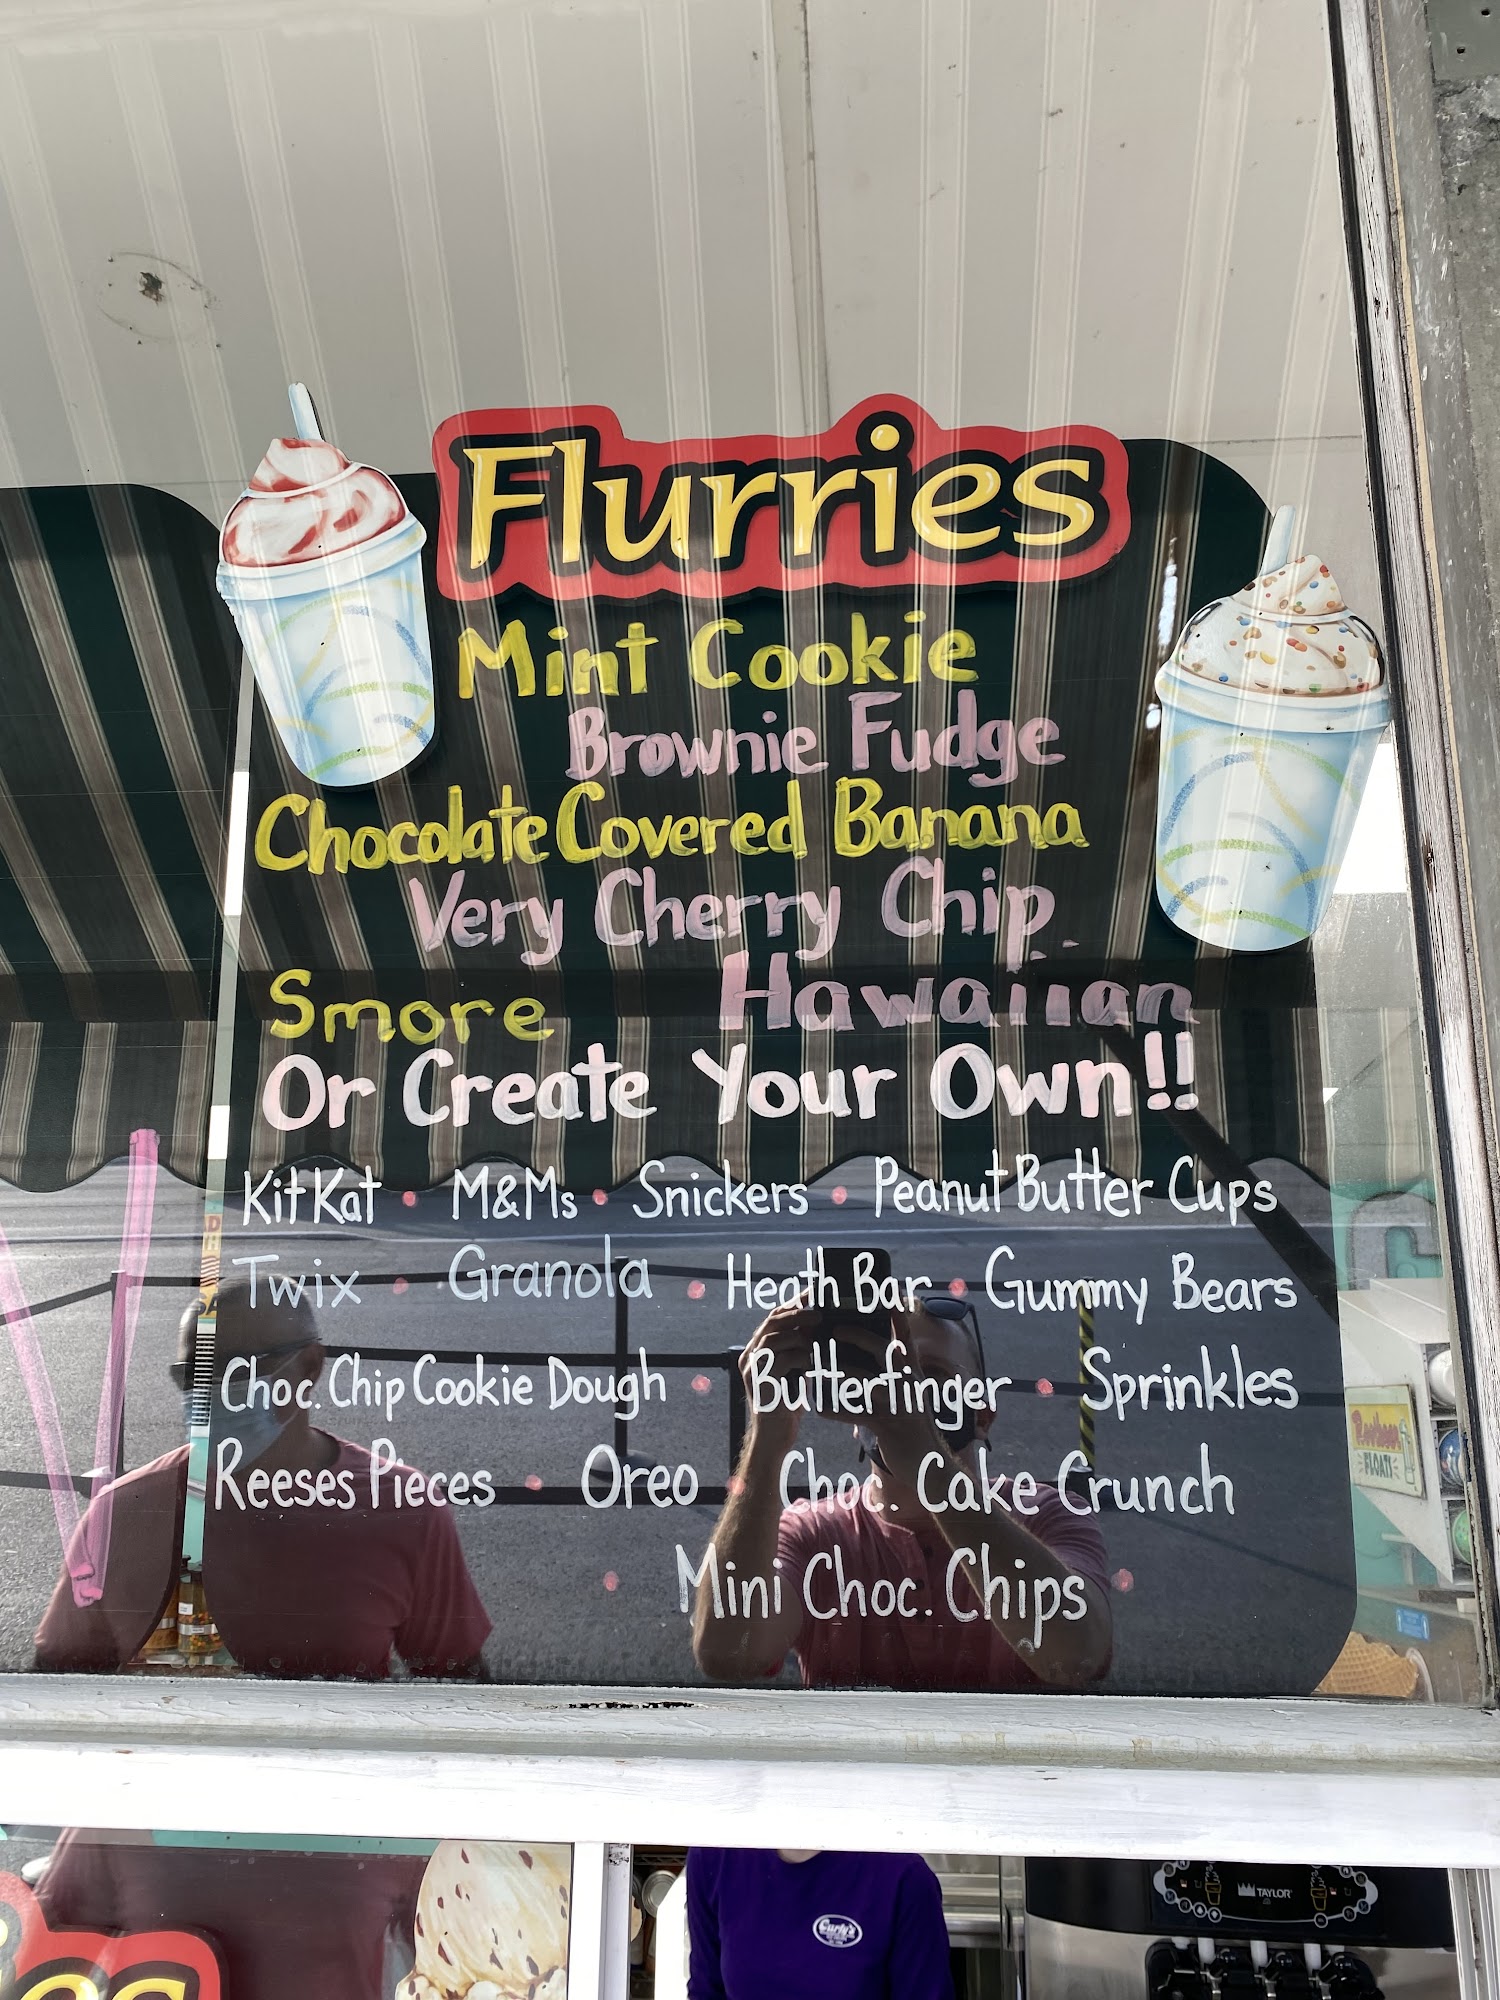 Flurries
Mint Cookie
Brownie Fudge
Chocolate Covered Banana
Very Cherry Chip
Smore Hawaiian
Or Create Your Own!!
KitKat • M&Ms • Snickers • Peanut Butter Cups
Twix • Granola • Heath Bar • Gummy Bears
Choc. Chip Cookie Dough • Butterfinger • Sprinkles
Reeses Pieces • Oreo • Choc. Cake Crunch
• Mini Choc. Chips •
FLOAT!
Curly's
TAYLOR